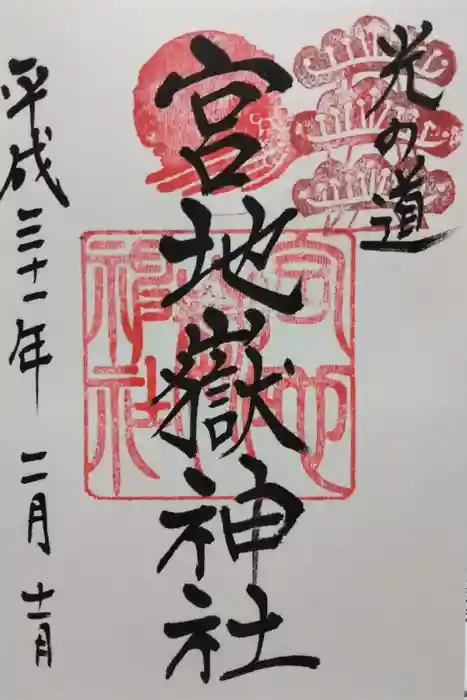 光の道
宮地嶽神社
平成三十一年 二月 十一日
宮地嶽神社